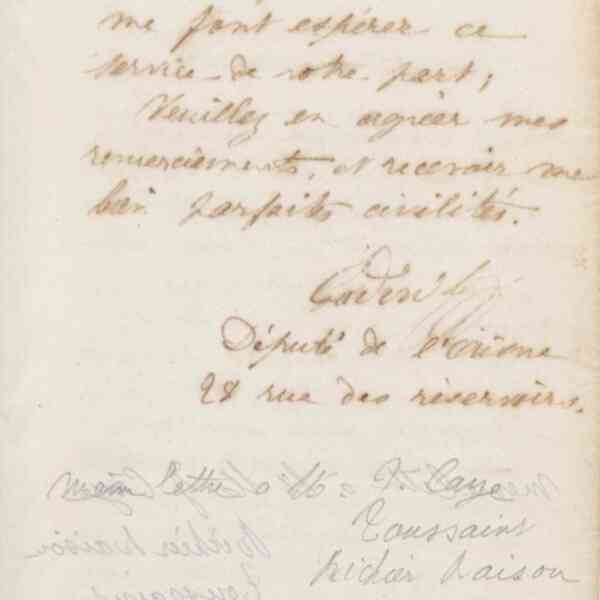 me font espérer ce
service de votre part ;
Veuillez en agréer mes
remerciements, et recevoir me
bien parfaits civilités.
Godin
Député de l'aisne
28 rue des réservoirs.
même lettre à M = P. Caye
Toussaint